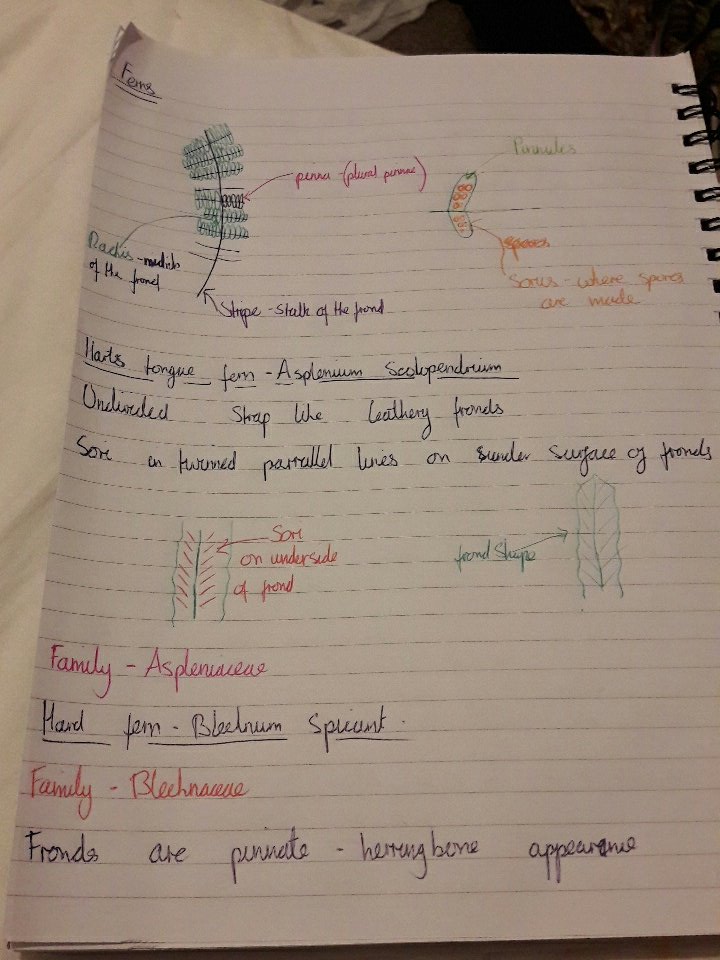 Ferns
Pinnules
penna - (plural pinnae)
Rachis - midrib
of the frond
spores
Sorus - where spores
are made
Stipe - Stalk of the frond
Harts tongue fern - Asplenium Scolopendrium
Undivided Strap like leathery fronds
Sori in twinned parrallel lines on under surface of fronds
Sori
on underside
of frond
frond shape
Family - Aspleniaceae
Hard fern - Blechnum Spicant.
Family - Blechnaceae
Fronds are pinnate - herringbone appearance